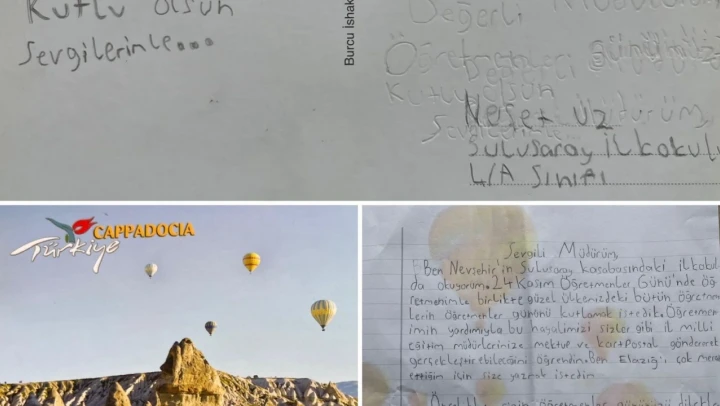 Kutlu olsun
Sevgilerimle...
Burcu İshak
Değerli
Öğretmenler
Kutlu olsun
Neşet Uz
Sulusaray İlkokulu
4/A Sınıfı
CAPPADOCIA
Türkiye
Sevgili Müdürüm,
Ben Nevşehir'in Sulusaray kasabasındaki ilkokul
da okuyorum. 24 Kasım Öğretmenler Günü'nde öğ
retmenimle birlikte güzel ülkemizdeki bütün öğretmen
lerin öğretmenler gününü kutlamak istedik. Öğretmen
imin yardımıyla bu hayalimizi sizler gibi il milli
eğitim müdürlerimize mektup ve kartpostal göndererek
gerçekleştirebileceğimi öğrendim. Ben Elazığ'ı çok merak
ettiğim için size yazmak istedim.